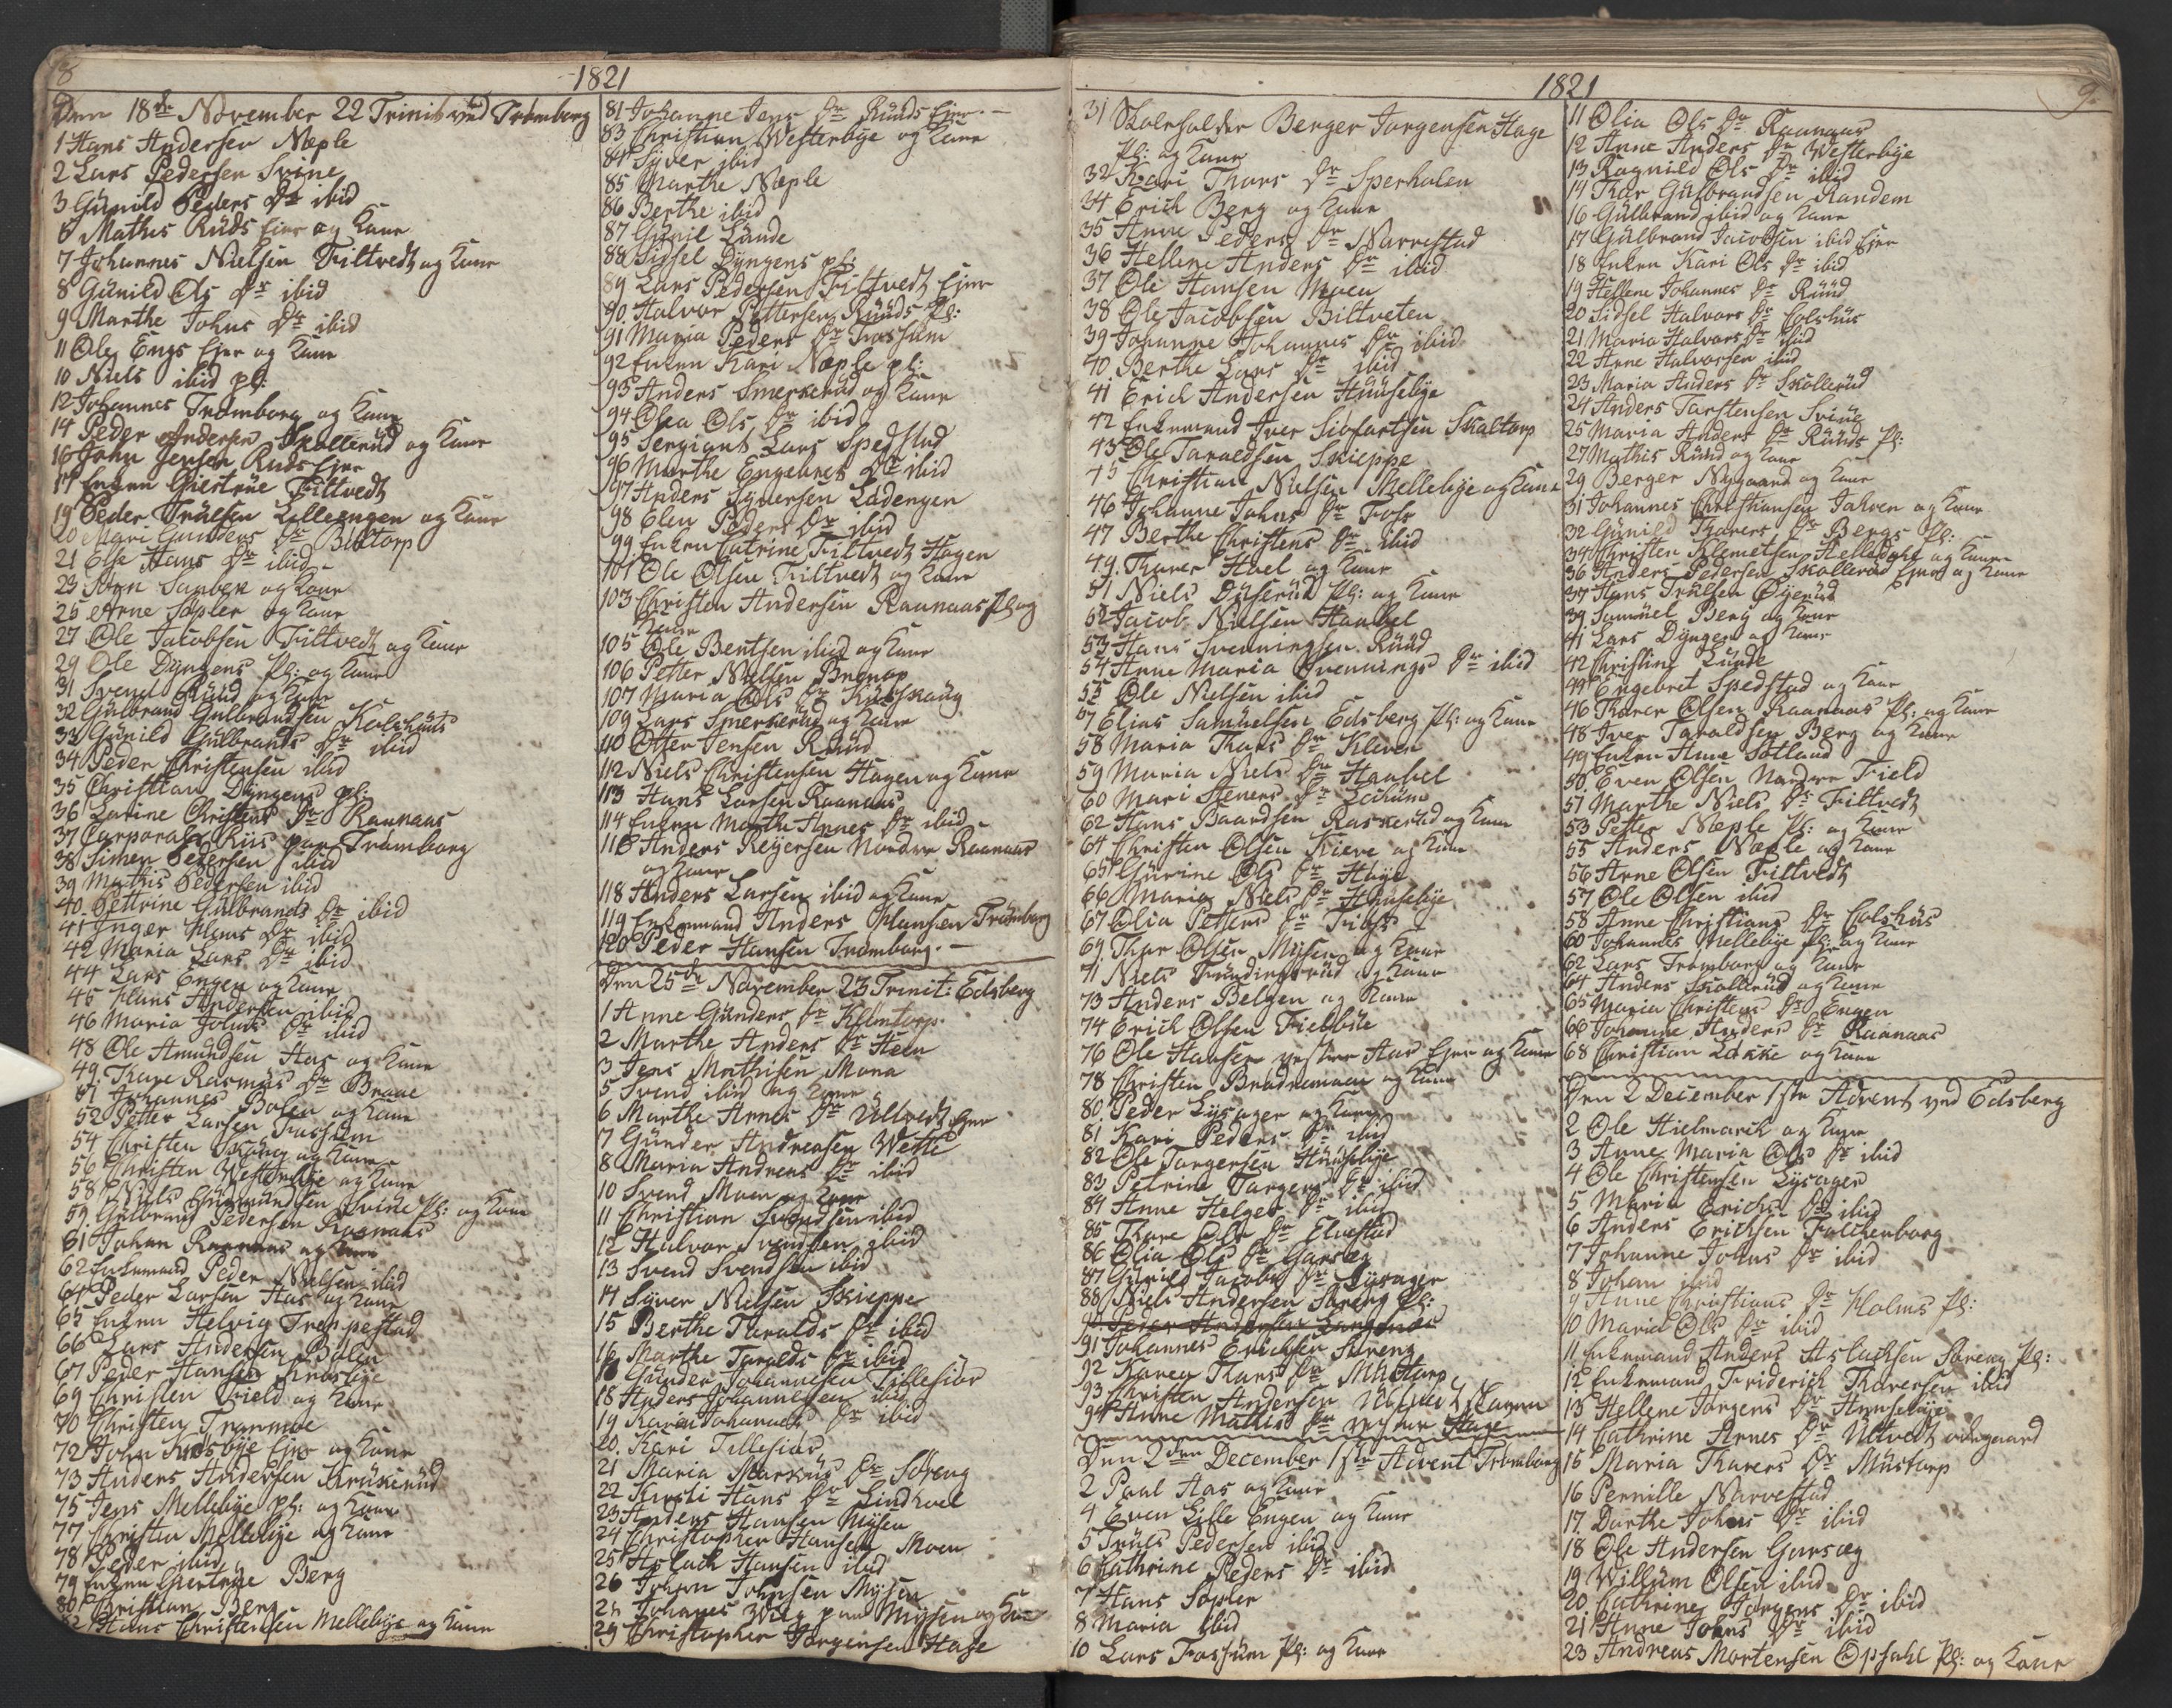 8
1821
Den 18de November 22 Trinit: ved Trømborg
1 Hans Andersen Næple
2 Lars Pedersen Svine
3 Gunild Peders Dr ibid
6 Mathis Ruds Ejer og Kone
7 Johannes Nielsen Filtvedt og Kone
8 Gunild Ols Dr ibid
9 Marthe Johns Dr ibid
11 Ole Engs Ejer og Kone
10 Niels ibid pl:
12 Johannes Tromborg og Kone
14 Peder Andersen Skollerud og Kone
16 John Jensen Ruds Ejer
17 Enken Giertrue Filtvedt
19 Peder Trulsen Lilleengen og Kone
20 Mari Gunders Dr Biltorp
21 Else Hans Dr ibid
23 Sanben og Kone
25 Arne Sopler og Kone
27 Ole Jacobsen Filtvedt og Kone
29 Ole Dyngens Pl: og Kone
31 Svend Ruud og Kone
32 Gulbrand Gulbrandsen Kolshuus
33 Gunild Gulbrands Dr ibid
34 Peder Christensen ibid
35 Christian Dyngens pl:
36 Larine Christens Dr Raanaas
37 Corporal Riis paa Tromborg
38 Simen Pedersen ibid
39 Mathis Pedersen ibid
40 Pettrine Gulbrands Dr ibid
41 Inger Hans Dr ibid
42 Maria Lars Dr ibid
44 Lars Engen og Kone
45 Hans Andersen ibid
46 Maria Johns Dr ibid
48 Ole Amundsen Aas og Kone
49 Kare Rasmus Dr Braae
51 Johannes Bolen og Kone
52 Petter Larsen Fossum
54 Christen Skoug og Kone
56 Christen Westerbye og Kone
58 Niels Gudmundsen Svine Pl: og Kone
59 Gulbrand Pedersen Raanaas
61 Johan Raanaas og Kone
62 Enkemand Peder Nielsen ibid
64 Peder Larsen Aas og Kone
65 Enken Helvig Trompestad
66 Lars Andersen Bolen
67 Peder Hansen
69 Christen Field og Kone
70 Christen
72 John Ejer og Kone
73 Anders Andersen
75 Jens Mellebye Pl: og Kone
77 Christen Mellebye og Kone
78 Peder ibid
79 Enken Giertrue Berg
80 Christian Berg
82 Hans Christensen Mellebye og Kone
81 Johanne Jens Dr Ruuds Ejer. —
83 Christian Westerbye og Kone
84 Syver ibid
85 Marthe Næple
86 Berthe ibid
87 Gunil Lunde
88 Sidsel Dyngens pl:
89 Lars Pedersen Filtvedt Ejer
90 Halvor Pettersen Ruuds Pl:
91 Maria Peders Dr Fossum
92 Enken Kari Næple pl:
93 Anders Smerkerud og Kone
94 Olea Ols Dr ibid
95 Sergiant Lars Spedstad
96 Marthe Engebret Dr ibid
97 Anders Syversen Ladengen
98 Elen Peders Dr ibid
99 Enken Catrine Filtvedt Hagen
101 Ole Olsen Filtvedt og Kone
103 Christen Andersen Raanaas Pl og
Kone
105 Ole Bentsen ibid og Kone
106 Petter Nielsen
107 Maria Ols Dr
109 Lars Smerkerud og Kone
110 Otter Jensen Ruud
112 Niels Christensen Hagen og Kone
113 Hans Larsen Raanaas
114 Enken Marthe Arnes Dr ibid
116 Anders Reyersen Nordre Raanaas
og Kone
118 Anders Larsen ibid og Kone
119 Enkemand Anders Hansen Trømborg
120 Peder Hansen Tromborg. —
Den 25de November 23 Trinit: Edsberg
1 Anne Gunders Dr
2 Marthe Anders Dr
3 Jens Mathisen Mona
5 Svend ibid og Kone
6 Marthe Arnes Dr Ultvedt Ejer
7 Gunder Andreasen
8 Maria Andreas Dr ibid
10 Svend Moen og Kone
11 Christian Svendsen ibid
12 Halvor Svendsen ibid
13 Svend Svendsen ibid
14 Syver Nielsen Skieppe
15 Berthe Taralds Dr ibid
16 Marthe Taralds Dr ibid
18 Gunder Johannesen Tillesiør
18 Anders Johannesen ibid
19 Karen Johannes Dr ibid
20 Kari Tillesiør
21 Maria Markus Dr Søreng
22 Kirsti Hans Dr Lindhoel
23 Anders Hansen Mysen
24 Christopher Hansen Moen
25 Aslack Hansen ibid
26 Johan Johnsen Mysen
28 Johanes Wiig paa Mysen og Kone
29 Christopher Jørgensen Hage
1821
9
31 Skoleholder Berger Jørgensen Hage
Pl: og Kone
32 Kari Thors Dr Sperholen
34 Erich Berg og Kone
35 Anne Peders Dr Narvestad
36 Hellene Anders Dr ibid
37 Ole Hansen Moen
38 Ole Jacobsen Biltveten
39 Johanne Johannes Dr ibid
40 Berthe Lars Dr ibid
41 Erich Andersen Huusebye
42 Enkemand Iver Siofartsen Skaltorp
43 Ole Taraldsen Skieppe
45 Christian Nielsen Mellebye og Kone
46 Johanne Johns Dr Foss
47 Berthe Christens Dr ibid
49 Thorer Hoel og Kone
51 Niels Dyserud Pl: og Kone
52 Jacob Nielsen Haabel
53 Hans Svenningsen Ruud
54 Anne Maria Svennings Dr ibid
55 Ole Nielsen ibid
57 Elias Samuelsen Edsberg Pl: og Kone
58 Maria Thors Dr Kleven
59 Maria Niels Dr Haabel
60 Mari Steners Dr Lekum
62 Hans Baardsen Raskerud og Kone
64 Christen Olsen Kieve og Kone
65 Gurine Ols Dr Høye
66 Maria Niels Dr Huusebye
67 Olia Petters Dr
69 Thor Olsen Mysen og Kone
71 Niels Trundingsrud og Kone
73 Anders Belgen og Kone
74 Erich Olsen Fielbyle
76 Ole Hansen vestre Aas Ejer og Kone
78 Christen Brødremoen og Kone
80 Peder Lysager og Kone
81 Kari Peders Dr ibid
82 Ole Torgersen Huusebye
83 Petrine Torgers Dr ibid
84 Anne Helges Dr ibid
85 Thore Ols Dr Elvestad
86 Olia Ols Dr Garsæg
87 Gunild Jacobs Dr Lysager
88 Niels Andersen Søreng Pl:
91 Johannes Erichsen Søreng
92 Karen Thors Dr
93 Christen Andersen Ultvedt
94 Anne Mathis Dr
Den 2den December 1ste Advent Trømborg
2 Paul Aas og Kone
4 Even Lille Engen og Kone
5 Truls Pedersen ibid
6 Cathrine Peders Dr ibid
7 Hans Sopler
8 Maria ibid
10 Lars Fossum Pl: og Kone
11 Olia Ols Dr Raanaas
12 Anne Anders Dr Westerbye
13 Ragnild Ols Dr ibid
14 Thor Gulbrandsen Randem
16 Gulbrand ibid og Kone
17 Gulbrand Jacobsen ibid Ejer
18 Enken Kari Ols Dr ibid
19 Hellene Johannes Dr Ruud
20 Sidsel Halvors Dr Colshus
21 Maria Halvors Dr ibid
22 Arne Halvorsen ibid
23 Maria Anders Dr Skollerud
24 Anders Torstensen Svine
25 Maria Anders Dr Ruuds Pl:
27 Mathis Ruud og Kone
29 Berger Nygaard og Kone
31 Johannes Christiansen Jahren og Kone
32 Gunild Thorers Dr Bergs Pl:
34 Christen Klemetsen Helledahl og Kone
36 Anders Pedersen Skollerud Ejer og Kone
37 Hans Trulsen Øyerud
39 Samuel Berg og Kone
41 Lars Dyngen og Kone
42 Christine Lunde
44 Engebret Spedstad og Kone
46 Thorer Olsen Raanaas Pl: og Kone
48 Iver Taraldsen Berg og Kone
49 Enken Anne Sotland
50 Even Olsen Nordre Field
51 Marthe Niels Dr Filtvedt
53 Petter Næple Pl: og Kone
55 Anders Næple og Kone
56 Arne Olsen Filtvedt
57 Ole Olsen ibid
58 Anne Christians Dr Colshus
60 Johannes Mellebye Pl: og Kone
62 Lars Tromborg og Kone
64 Anders Skollerud og Kone
65 Maria Christens Dr Engen
66 Johanne Anders Dr Raanaas
68 Christian Løkke og Kone
Den 2 December 1ste Advent ved Edsberg
2 Ole Hielmarck og Kone
3 Anne Maria Ols Dr ibid
4 Ole Christensen Lysager
5 Maria Erichs Dr ibid
6 Anders Erichsen Falchenborg
7 Johanne Johns Dr ibid
8 Johan ibid
9 Anne Christians Dr Holms Pl:
10 Maria Ols Dr ibid
11 Enkemand Anders Aslachsen Søreng Pl:
12 Enkemand Friderich Thoresen ibid
13 Hellene Jørgens Dr Huusebye
14 Cathrine Arnes Dr Ultvedt ødegaard
15 Maria Thorers Dr Mustorp
16 Pernille Narvestad
17 Dorthe Johns Dr ibid
18 Ole Andersen Garsæg
19 Willum Olsen ibid
20 Cathrine Jørgens Dr ibid
21 Anne Johns Dr ibid
23 Andreas Mortensen Opsahl Pl: og Kone